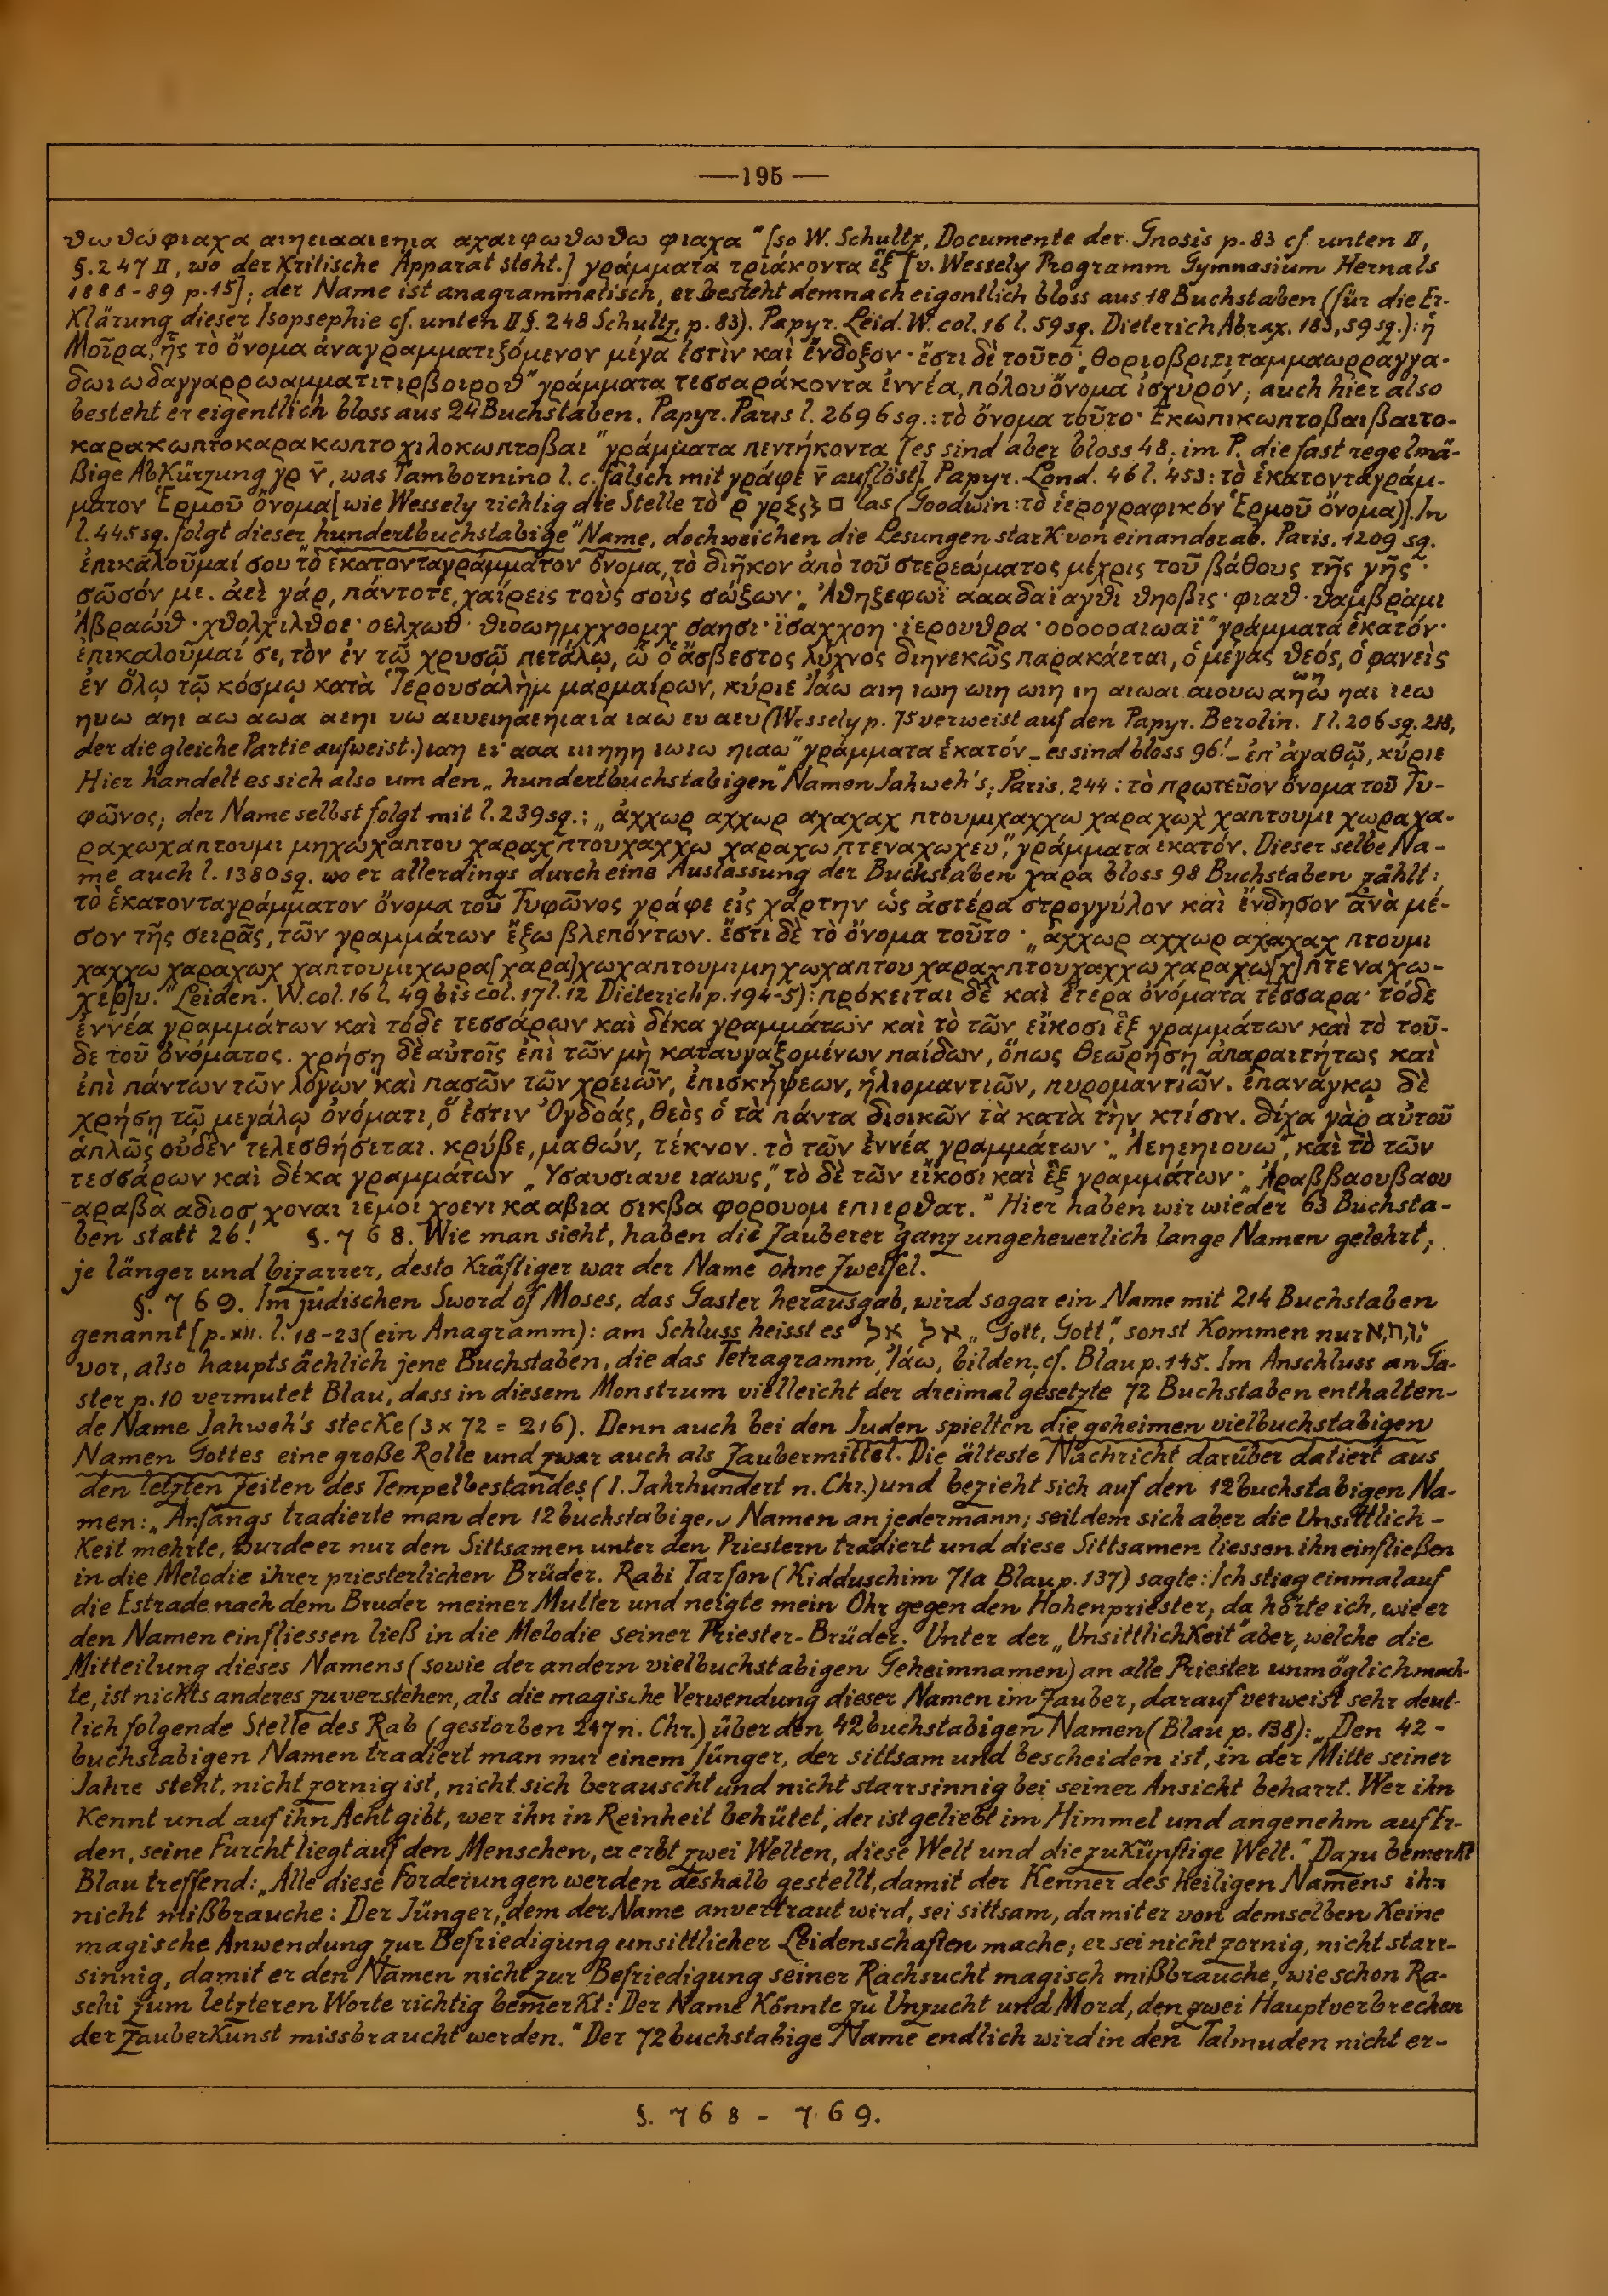 —195—
ϑωϑώφιαχα αιηειααιεηια αχαιφωϑωϑω φιαχα" [so W. Schultz, Documente der Gnosis p. 83 cf. unten II,
§. 247 II, wo der Kritische Apparat steht.] γράμματα τριάκοντα ἕξ [v. Wessely Programm Gymnasium Hernals
1888-89 p. 15]; der Name ist anagrammatisch, er besteht demnach eigentlich bloss aus 18 Buchstaben (für die Er-
Klärung dieser Isopsephie cf. unten II §. 248 Schultz, p. 83). Papyr. Leid. W. col. 16 l. 59 sq. Dieterich Abrax. 183, 59 sq.): ἡ
Μοῖρα, ἧς τὸ ὄνομα ἀναγραμματιζόμενον μέγα ἐστὶν καὶ ἔνδοξον · ἔστι δὲ τοῦτο „ϑοριοβριτιταμμαωρραγγα-
δωιωδαγγαρρωαμματιτιρβοιροϑ" γράμματα τεσσαράκοντα ἐννέα, πόλου ὄνομα ἰσχυρόν; auch hier also
besteht er eigentlich bloss aus 24 Buchstaben. Papyr. Paris l. 2696 sq.: τὸ ὄνομα τοῦτο· Εκωπικωπτοβαιβαιτο-
καρακωπτοκαρακωπτοχιλοκωπτοβαι" γράμματα πεντήκοντα [es sind aber bloss 48; im P. die fast regelmä-
ßige AbKürzung γρ ν̄, was Tambornino l. c. falsch mit γράφε ν̄ auflöst]. Papyr. Lond. 46 l. 453: τὸ ἑκατονταγράμ-
ματον Ἑρμοῦ ὄνομα [wie Wessely richtig die Stelle τὸ ρ γρ las (Goodwin: τὸ ἱερογραφικόν Ἑρμοῦ ὄνομα)]. In
l. 445 sq. folgt dieser „hundertbuchstabige" Name, doch weichen die Lesungen starK von einander ab. Paris. 1209 sq.
ἐπικαλοῦμαί σου τὸ ἑκατονταγράμματον ὄνομα, τὸ διῆκον ἀπὸ τοῦ στερεώματος μέχρις τοῦ βάθους τῆς γῆς ·
σῶσόν με. ἀεὶ γάρ, πάντοτε, χαίρεις τοὺς σοὺς σώζων· „Ἀϑηζεφωϊ αααδαϊαγϑι ϑηοβις · φιαϑ · ϑαμβραμι
Ἀβραωϑ · χϑολχιλϑοε · οελχωϑ · ϑιοωημχχοομχ σαησι · ϊσαχχοη · ἰερουϑρα · οοοοοαιωαϊ" γράμματα ἑκατόν·
ἐπικαλοῦμαί σε, τὸν ἐν τῷ χρυσῷ πετάλῳ, ᾧ ὁ ἄσβεστος λύχνος διηνεκῶς παρακάεται, ὁ μέγας ϑεός, ὁ φανεὶς
ἐν ὅλῳ τῷ κόσμῳ κατὰ Ἱερουσαλὴμ μαρμαίρων, κύριε Ἰάω αιη ιωη ωιη ωιη ιη αιωαι αιουω αηω ηαι ιεω
ηυω αηι αω αωα αεηι υω αιυειηαεηιαια ιαω ευ αευ (Wessely p. 75 verweist auf den Papyr. Berolin. I l. 206 sq. 218,
der die gleiche Partie aufweist.) ιαη ει ααα ιιιηηη ιωιω ηιαω" γράμματα ἑκατόν – es sind bloss 96! – ἐπ' ἀγαθῷ, κύριε
Hier handelt es sich also um den „hundertbuchstabigen" Namen Jahweh's; Paris. 244: τὸ πρωτεῦον ὄνομα τοῦ Τυ-
φῶνος; der Name selbst folgt mit l. 239 sq.: „ἀχχωρ αχχωρ αχαχαχ πτουμιχαχχω χαραχωχ χαπτουμι χωραχα-
ραχωχαπτουμι μηχωχαπτου χαραχπτουχαχχω χαραχω πτεναχωχευ", γράμματα ἑκατόν. Dieser selbe Na-
me auch l. 1380 sq. wo er allerdings durch eine Auslassung der Buchstaben χαρα bloss 98 Buchstaben zählt:
τὸ ἑκατονταγράμματον ὄνομα τοῦ Τυφῶνος γράφε εἰς χάρτην ὡς ἀστέρα στρογγύλον καὶ ἔνδησον ἀνὰ μέ-
σον τῆς σειρᾶς, τῶν γραμμάτων ἔξω βλεπόντων. ἔστι δὲ τὸ ὄνομα τοῦτο · „ἀχχωρ αχχωρ αχαχαχ πτουμι
χαχχω χαραχωχ χαπτουμιχωρα[χαρα]χωχαπτουμιμηχωχαπτου χαραχπτουχαχχω χαραχω[χ]πτεναχω-
χε[ρ]υ." Leiden. W. col. 16 l. 49 bis col. 17 l. 12 Dieterich p. 194-5): πρόκειται δὲ καὶ ἕτερα ὀνόματα τέσσαρα· τόδε
ἐννέα γραμμάτων καὶ τόδε τεσσάρων καὶ δέκα γραμμάτων καὶ τὸ τῶν εἴκοσι ἓξ γραμμάτων καὶ τὸ τοῦ-
δε τοῦ ὀνόματος. χρήσῃ δὲ αὐτοῖς ἐπὶ τῶν μὴ καταυγαζομένων παίδων, ὅπως θεωρήσῃ ἀπαραιτήτως καὶ
ἐπὶ πάντων τῶν λόγων καὶ πασῶν τῶν χρειῶν, ἐπισκήψεων, ἡλιομαντιῶν, πυρομαντιῶν. ἐπανάγκῳ δὲ
χρήσῃ τῷ μεγάλῳ ὀνόματι, ὅ ἐστιν Ὀγδοάς, θεὸς ὁ τὰ πάντα διοικῶν τὰ κατὰ τὴν κτίσιν. δίχα γὰρ αὐτοῦ
ἁπλῶς οὐδὲν τελεσθήσεται. κρύβε, μαθών, τέκνον. τὸ τῶν ἐννέα γραμμάτων · „Ἀεηεηιουω", καὶ τὸ τῶν
τεσσάρων καὶ δέκα γραμμάτων „Υσαυσιαυε ιαωυς," τὸ δὲ τῶν εἴκοσι καὶ ἓξ γραμμάτων · „Ἀραββαουβαου
αραβα αδιοσ χοναι ιεμοι χοενι κααβια σικβα φορουομ επιερϑατ." Hier haben wir wieder 63 Buchsta-
ben statt 26! §. 768. Wie man sieht, haben die Zauberer ganz ungeheuerlich lange Namen gelehrt;
je länger und bizarrer, desto Kräftiger war der Name ohne Zweifel.
§. 769. Im jüdischen Sword of Moses, das Gaster herausgab, wird sogar ein Name mit 214 Buchstaben
genannt [p. XII. l. 18-23 (ein Anagramm): am Schluss heisst es אל אל „Gott, Gott", sonst Kommen nur י,ו,ה,א
vor, also hauptsächlich jene Buchstaben, die das Tetragramm, Ἰάω, bilden; cf. Blau p. 145. Im Anschluss an Ga-
ster p. 10 vermutet Blau, dass in diesem Monstrum vielleicht der dreimal gesetzte 72 Buchstaben enthalten-
de Name Jahweh's stecKe (3 x 72 = 216). Denn auch bei den Juden spielten die geheimen vielbuchstabigen
Namen Gottes eine große Rolle und zwar auch als Zaubermittel. Die älteste Nachricht darüber datiert aus
den letzten Zeiten des Tempelbestandes (I. Jahrhundert n. Chr.) und bezieht sich auf den 12buchstabigen Na-
men: „Anfangs tradierte man den 12buchstabigen Namen an jedermann; seitdem sich aber die Unsittlich-
Keit mehrte, wurde er nur den Sittsamen unter den Priestern tradiert und diese Sittsamen liessen ihn einfließen
in die Melodie ihrer priesterlichen Brüder. Rabi Tarfon (Kidduschim 71a Blau p. 137) sagte: Ich stieg einmal auf
die Estrade nach dem Bruder meiner Mutter und neigte mein Ohr gegen den Hohenpriester, da hörte ich, wie er
den Namen einfliessen ließ in die Melodie seiner Priester-Brüder." Unter der „UnsittlichKeit" aber, welche die
Mitteilung dieses Namens (sowie der andern vielbuchstabigen Geheimnamen) an alle Priester unmöglich mach-
te, ist nichts anderes zu verstehen, als die magische Verwendung dieser Namen im Zauber, darauf verweist sehr deut-
lich folgende Stelle des Rab (gestorben 247 n. Chr.) über den 42buchstabigen Namen (Blau p. 138): „Den 42-
buchstabigen Namen tradiert man nur einem Jünger, der sittsam und bescheiden ist, in der Mitte seiner
Jahre steht, nicht zornig ist, nicht sich berauscht und nicht starrsinnig bei seiner Ansicht beharrt. Wer ihn
Kennt und auf ihn Acht gibt, wer ihn in Reinheit behütet, der ist geliebt im Himmel und angenehm auf Er-
den, seine Furcht liegt auf den Menschen, er erbt zwei Welten, diese Welt und die zuKünftige Welt." Dazu bemerkt
Blau treffend: „Alle diese Forderungen werden deshalb gestellt, damit der Kenner des heiligen Namens ihn
nicht mißbrauche: Der Jünger, dem der Name anvertraut wird, sei sittsam, damit er von demselben Keine
magische Anwendung zur Befriedigung unsittlicher Leidenschaften mache; er sei nicht zornig, nicht starr-
sinnig, damit er den Namen nicht zur Befriedigung seiner Rachsucht magisch mißbrauche, wie schon Ra-
schi zum letzteren Worte richtig bemerKt: Der Name Könnte zu Unzucht und Mord, den zwei Hauptverbrechen
der ZauberKunst missbraucht werden." Der 72buchstabige Name endlich wird in den Talmuden nicht er-
§. 768 - 769.